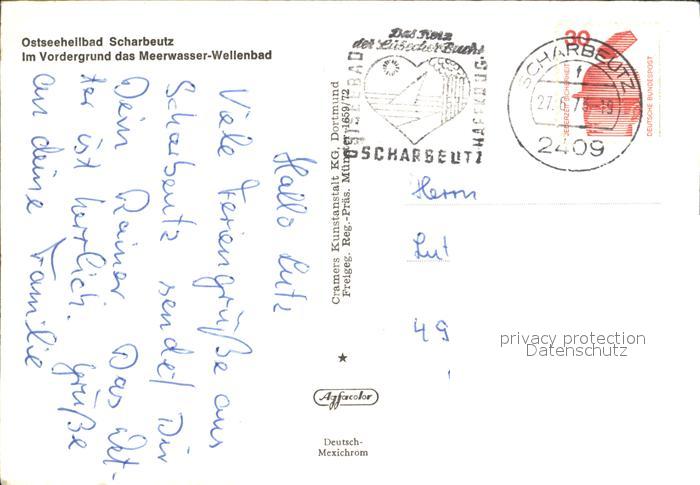 Ostseeheilbad Scharbeutz
Im Vordergrund das Meerwasser-Wellenbad
Hallo Lutz
Viele Feriengrüße aus
Scharbeutz sendet Dir
Dein Rainer. Das Wet-
ter ist herrlich. Grüße
an deine Familie
Cramers Kunstanstalt KG, Dortmund
Freigeg. Reg.-Präs. Münster 1659/72
Agfacolor
Deutsch-
Mexichrom
Das Herz
der Lübecker Bucht
OSTSEEBAD
HAFFKRUG
SCHARBEUTZ
SCHARBEUTZ
f
2409
30
JEDERZEIT SICHERHEIT
DEUTSCHE BUNDESPOST
Herrn
Lut
49
privacy protection
Datenschutz